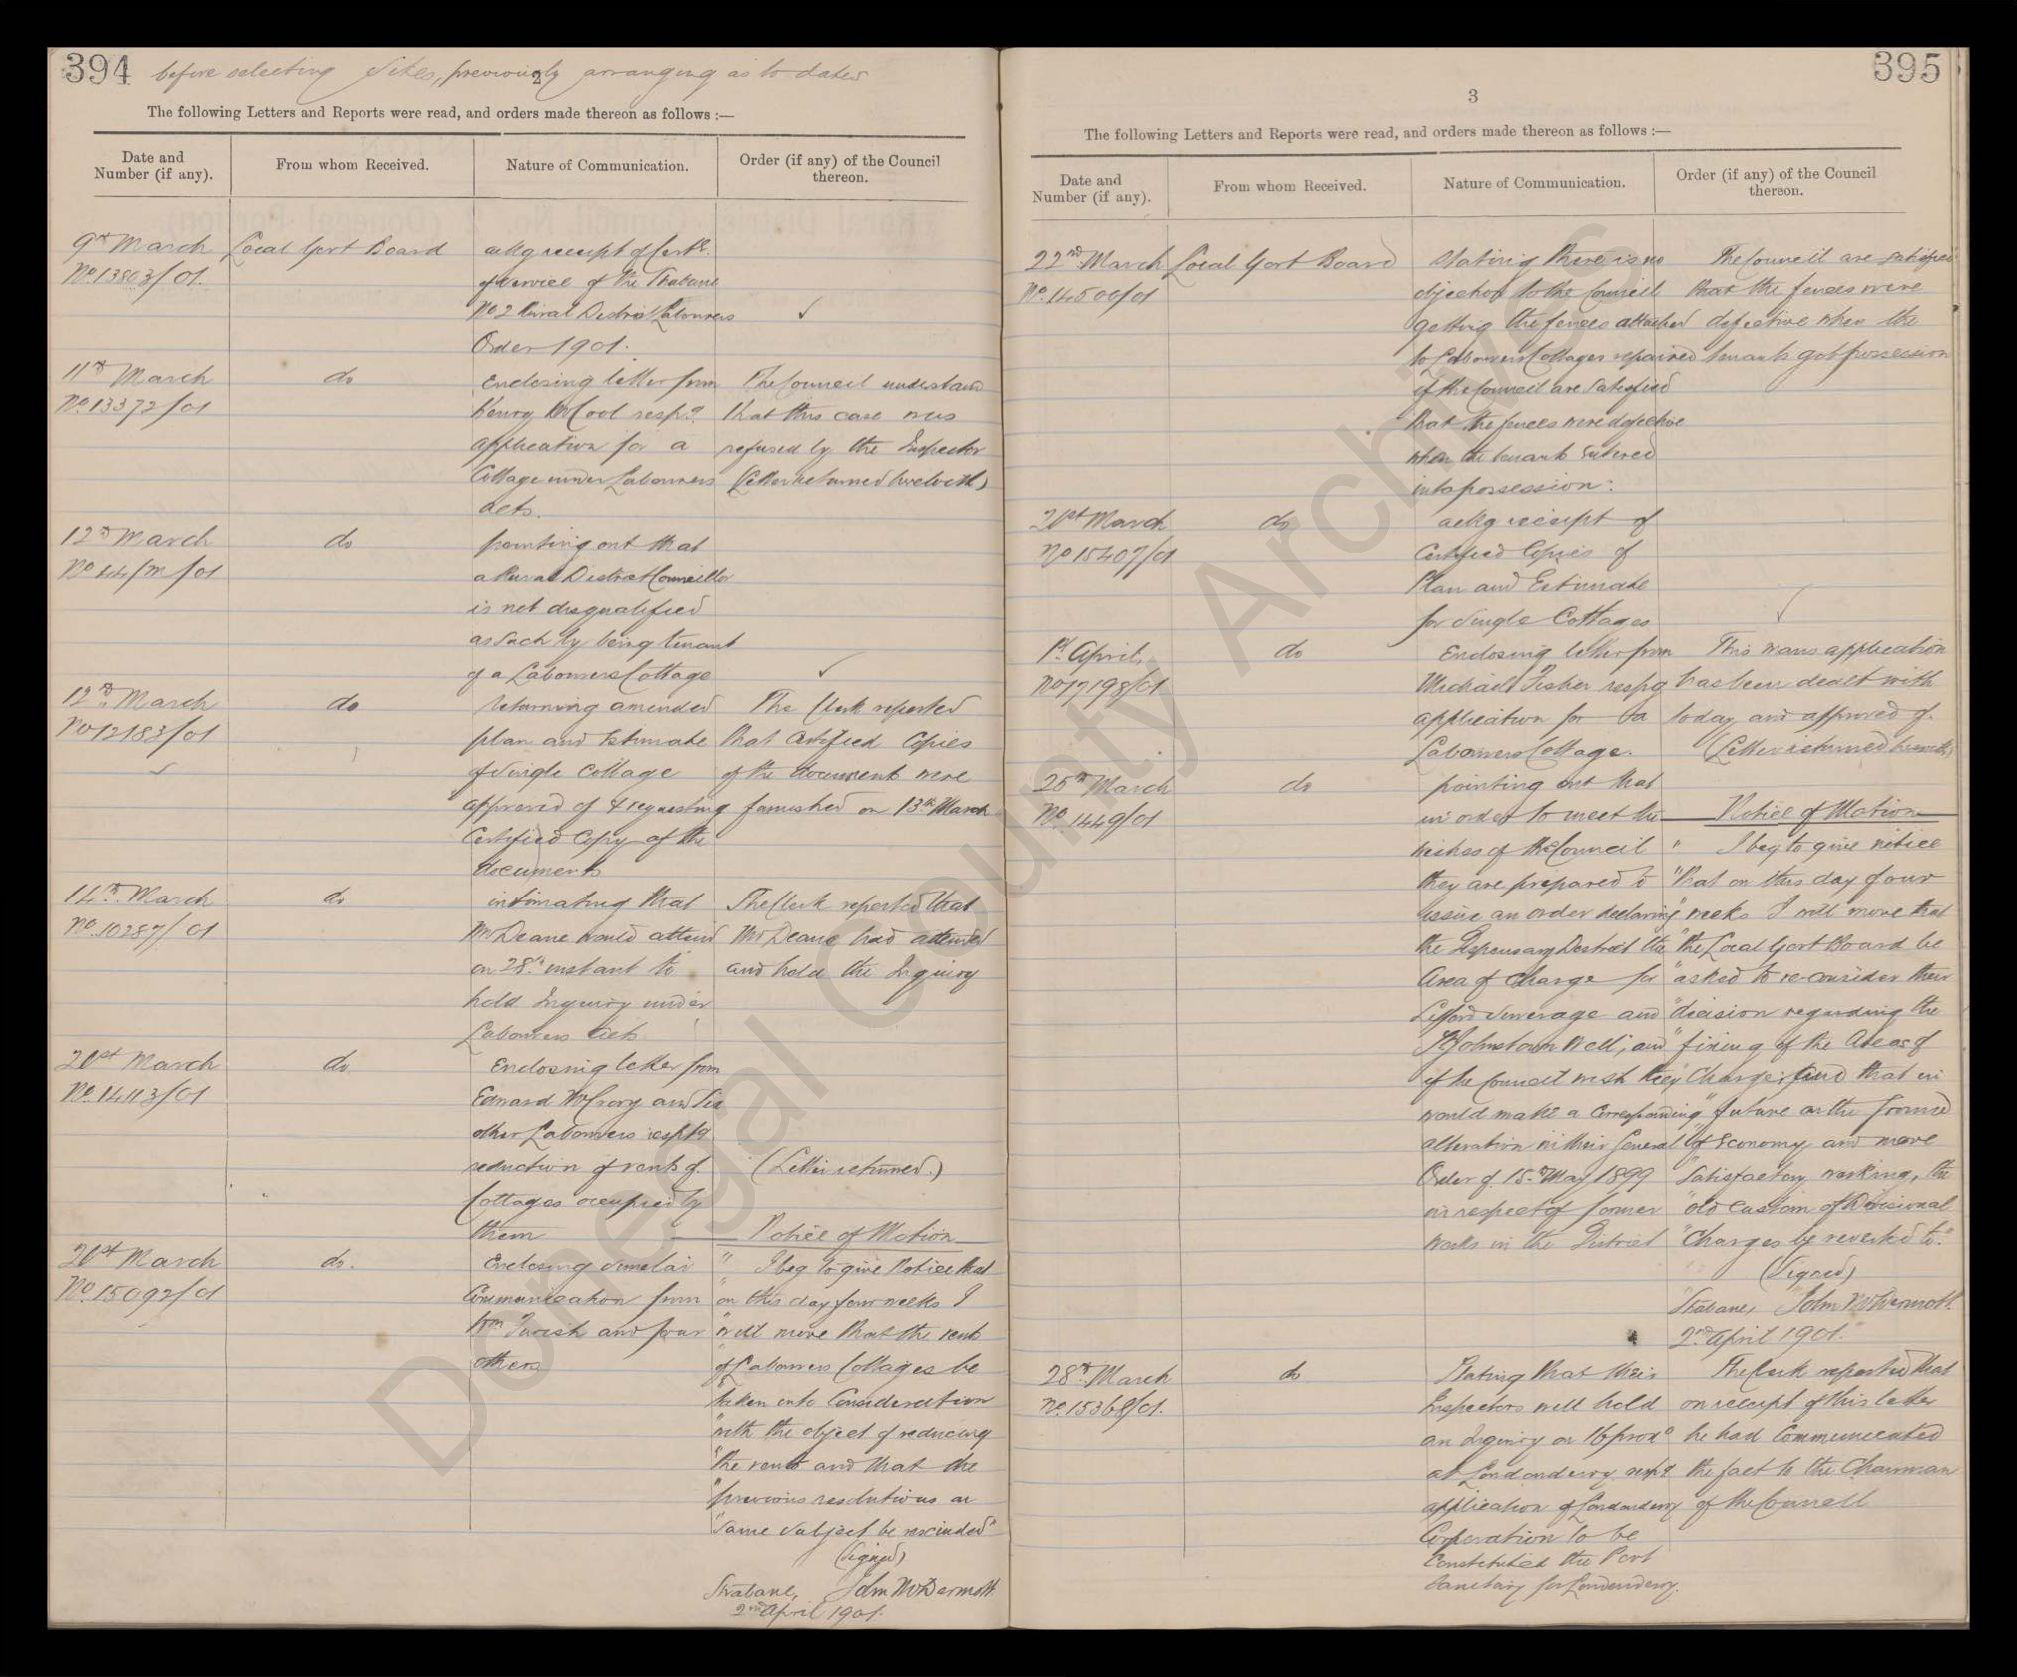 394 before selecting sites, previously arranging as to dates
2
The following Letters and Reports were read, and orders made thereon as follows :—
Date and Number (if any).
From whom Received.
Nature of Communication.
Order (if any) of the Council thereon.
9th March
No. 13863/01.
Local Govt Board
ackg receipt of Certe.
of service of the Strabane
No 2 Rural District Labourers
Order 1901.
✓
11th March
No. 13372/01
do
Enclosing letter from
Henry McCool respg.
application for a
Cottage under Labourers
Acts.
The Council understand
that this case was
refused by the Inspector
(Letter returned herewith)
12th March
No 44/M/01
do
pointing out that
a Rural District Councillor
is not disqualified
as such by being tenant
of a Labourers Cottage
✓
12th March
No 12183/01
✓
do
returning amended
plan and Estimate
of single Cottage
approved of & requesting
Certified Copy of the
documents
The Clerk reported
that Certified Copies
of the document were
furnished on 13th March
14th March
No. 10287/01
do
intimating that
Mr Deane would attend
on 28th instant to
hold Inquiry under
Labourers Acts
The Clerk reported that
Mr Deane had attended
and held the Inquiry
20st March
No. 14113/01
do
Enclosing letter from
Edward McCrory and six
other Labourers respectg
reduction of rents of
Cottages occupied by
them
(Letter returned.)
20st March
No. 15092/01
do.
Enclosing similar
Communication from
Wm Turish and four
others
Notice of Motion
" I beg to give Notice that
"on this day four weeks I
"will move that the rents
"of Labourers Cottages be
"taken into Consideration
"with the object of reducing
"the rents and that the
"previous resolutions on
"same subject be rescinded"
(Signed)
Strabane, John McDermott.
2nd April 1901.
395
3
The following Letters and Reports were read, and orders made thereon as follows :—
Date and Number (if any).
From whom Received.
Nature of Communication.
Order (if any) of the Council thereon.
22nd March
No. 14500/01
Local Govt Board
Stating there is no
objection to the Council
getting the fences attached
to Labourers Cottages repaired
if the Council are satisfied
that the fences were defective
when the tenants entered
into possession.
The Council are satisfied
that the fences were
defective when the
tenants got possession
21st March
No 15407/01
do
ackg receipt of
Certified Copies of
Plan and Estimate
for Single Cottages
✓
1st April,
No 17198/01
do
Enclosing letter from
Michael Fisher respg
application for a
Labourers Cottage.
This mans application
has been dealt with
today and approved of.
(Letter returned herewith)
25th March
No. 1449/01
do
pointing out that
in order to meet the
wishes of the Council
they are prepared to
issue an order declaring
the Dispensary District the
Area of Charge for
Lifford Sewerage and
St Johnstown Well, and
if the Council wish they
would make a Corresponding
alteration in their General
Order of 15th May 1899
in respect of former
works in the District
Notice of Motion
" I beg to give notice
"that on this day four
"weeks I will move that
"the Local Govt Board be
"asked to re-consider their
"decision regarding the
"fixing of the Areas of
"Charge; and that in
"future on the ground
"of Economy and more
"satisfactory working, the
"old custom of Divisional
"Charges be reverted to."
(Signed)
Strabane, John McDermott.
2nd April 1901.
28th March
No. 15368/01.
do
Stating that their
Inspectors will hold
an Inquiry on 16 proxo
at Londonderry respg
application of Londonderry
Corporation to be
Constituted the Port
Sanitary for Londonderry.
The Clerk reported that
on receipt of this letter
he had Communicated
the fact to the Chairman
of the Council
Donegal County Archives